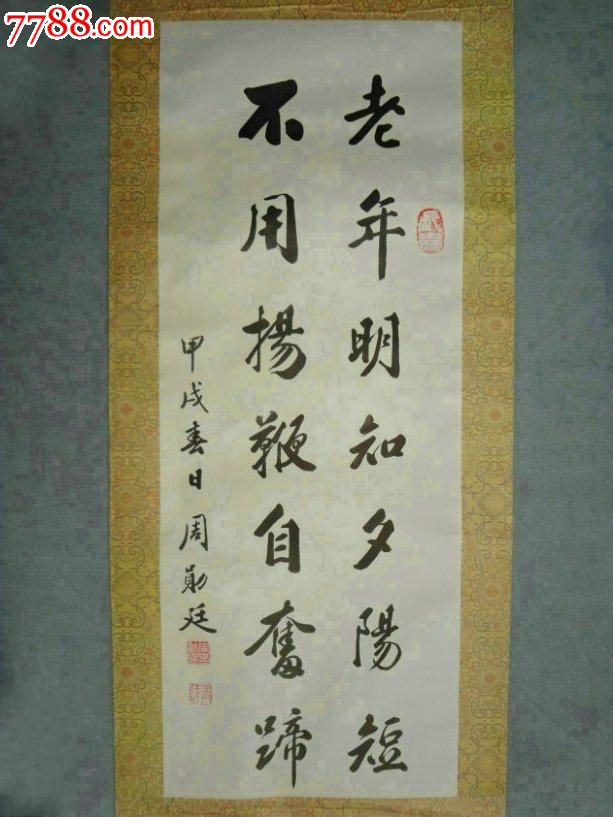 7788.com
老年明知夕陽短
不用揚鞭自奮蹄
甲戌春日周勛廷